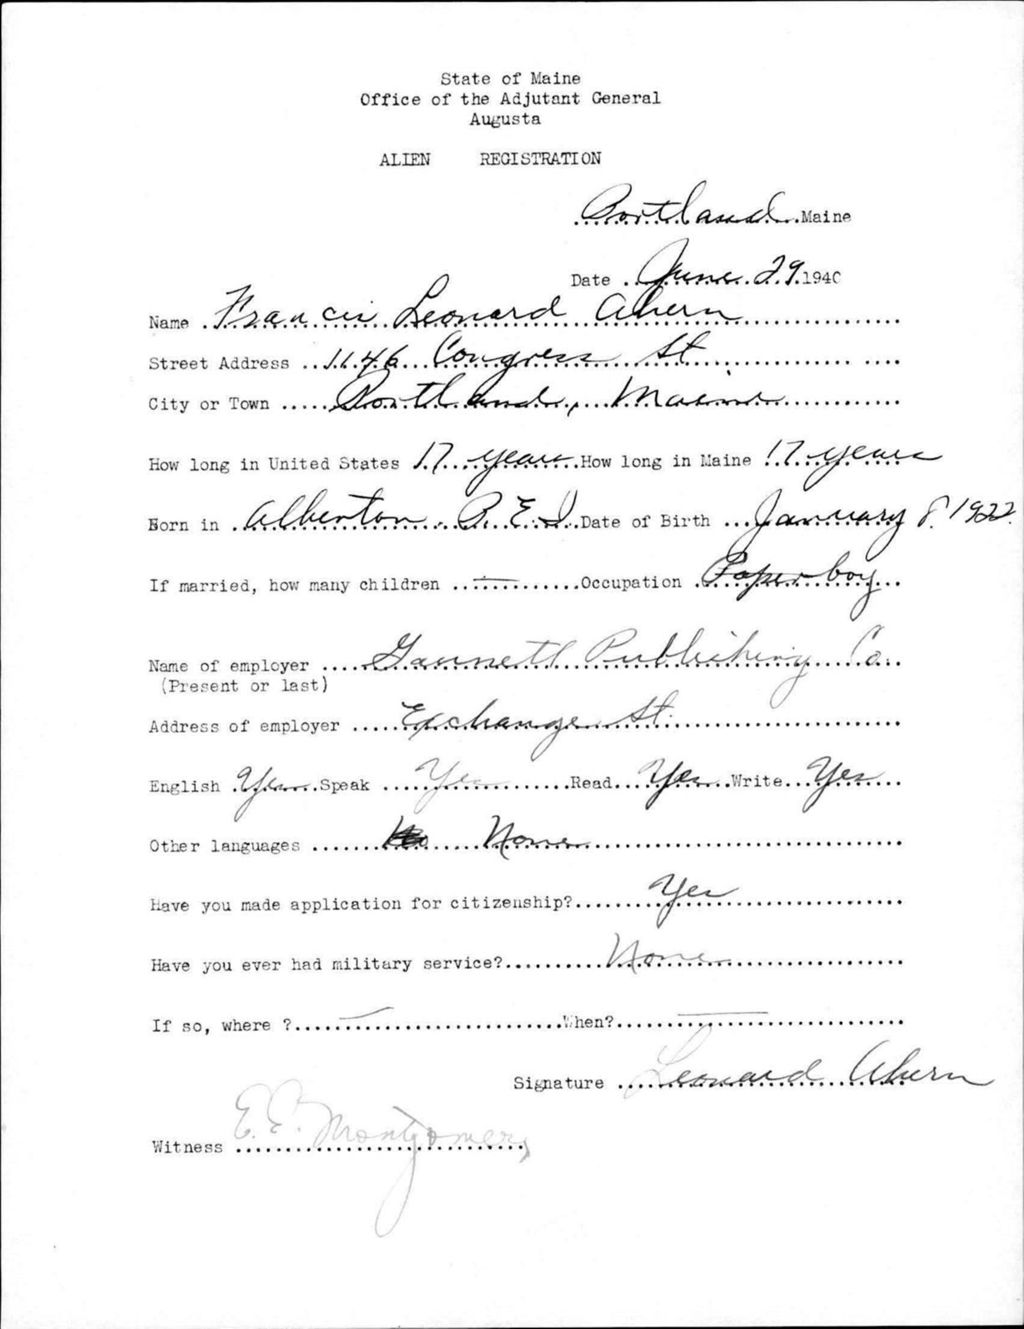 State of Maine
Office of the Adjutant General
Augusta
ALIEN REGISTRATION
Portland Maine
Date June 29 1940
Name Francis Leonard Ahern
Street Address 1146 Congress St
City or Town Portland, Maine
How long in United States 17 years How long in Maine 17 years
Born in Alberton P. E. I Date of Birth January 8, 1922.
If married, how many children — Occupation Paper boy
Name of employer Gannett Publishing Co.
(Present or last)
Address of employer Exchange St.
English Yes Speak Yes Read Yes Write Yes
Other languages None
Have you made application for citizenship? Yes
Have you ever had military service? None
If so, where ? — When? —
Signature Leonard Ahern
Witness E. E. Montgomery